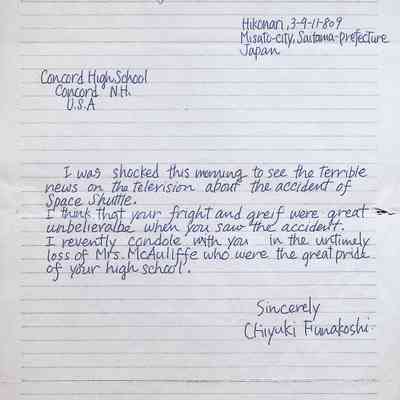 Hikonari, 3-9-11-809
Misato-city, Saitama-prefecture
Japan
Concord High School
Concord N.H.
U.S.A
I was shocked this morning to see the terrible
news on the television about the accident of
Space Shuttle.
I think that your fright and greif were great
unbelievalbe when you saw the accident.
I revently condole with you in the untimely
loss of Mrs. McAuliffe who were the great pride
of your high school.
Sincerely
Chiyuki Funakoshi